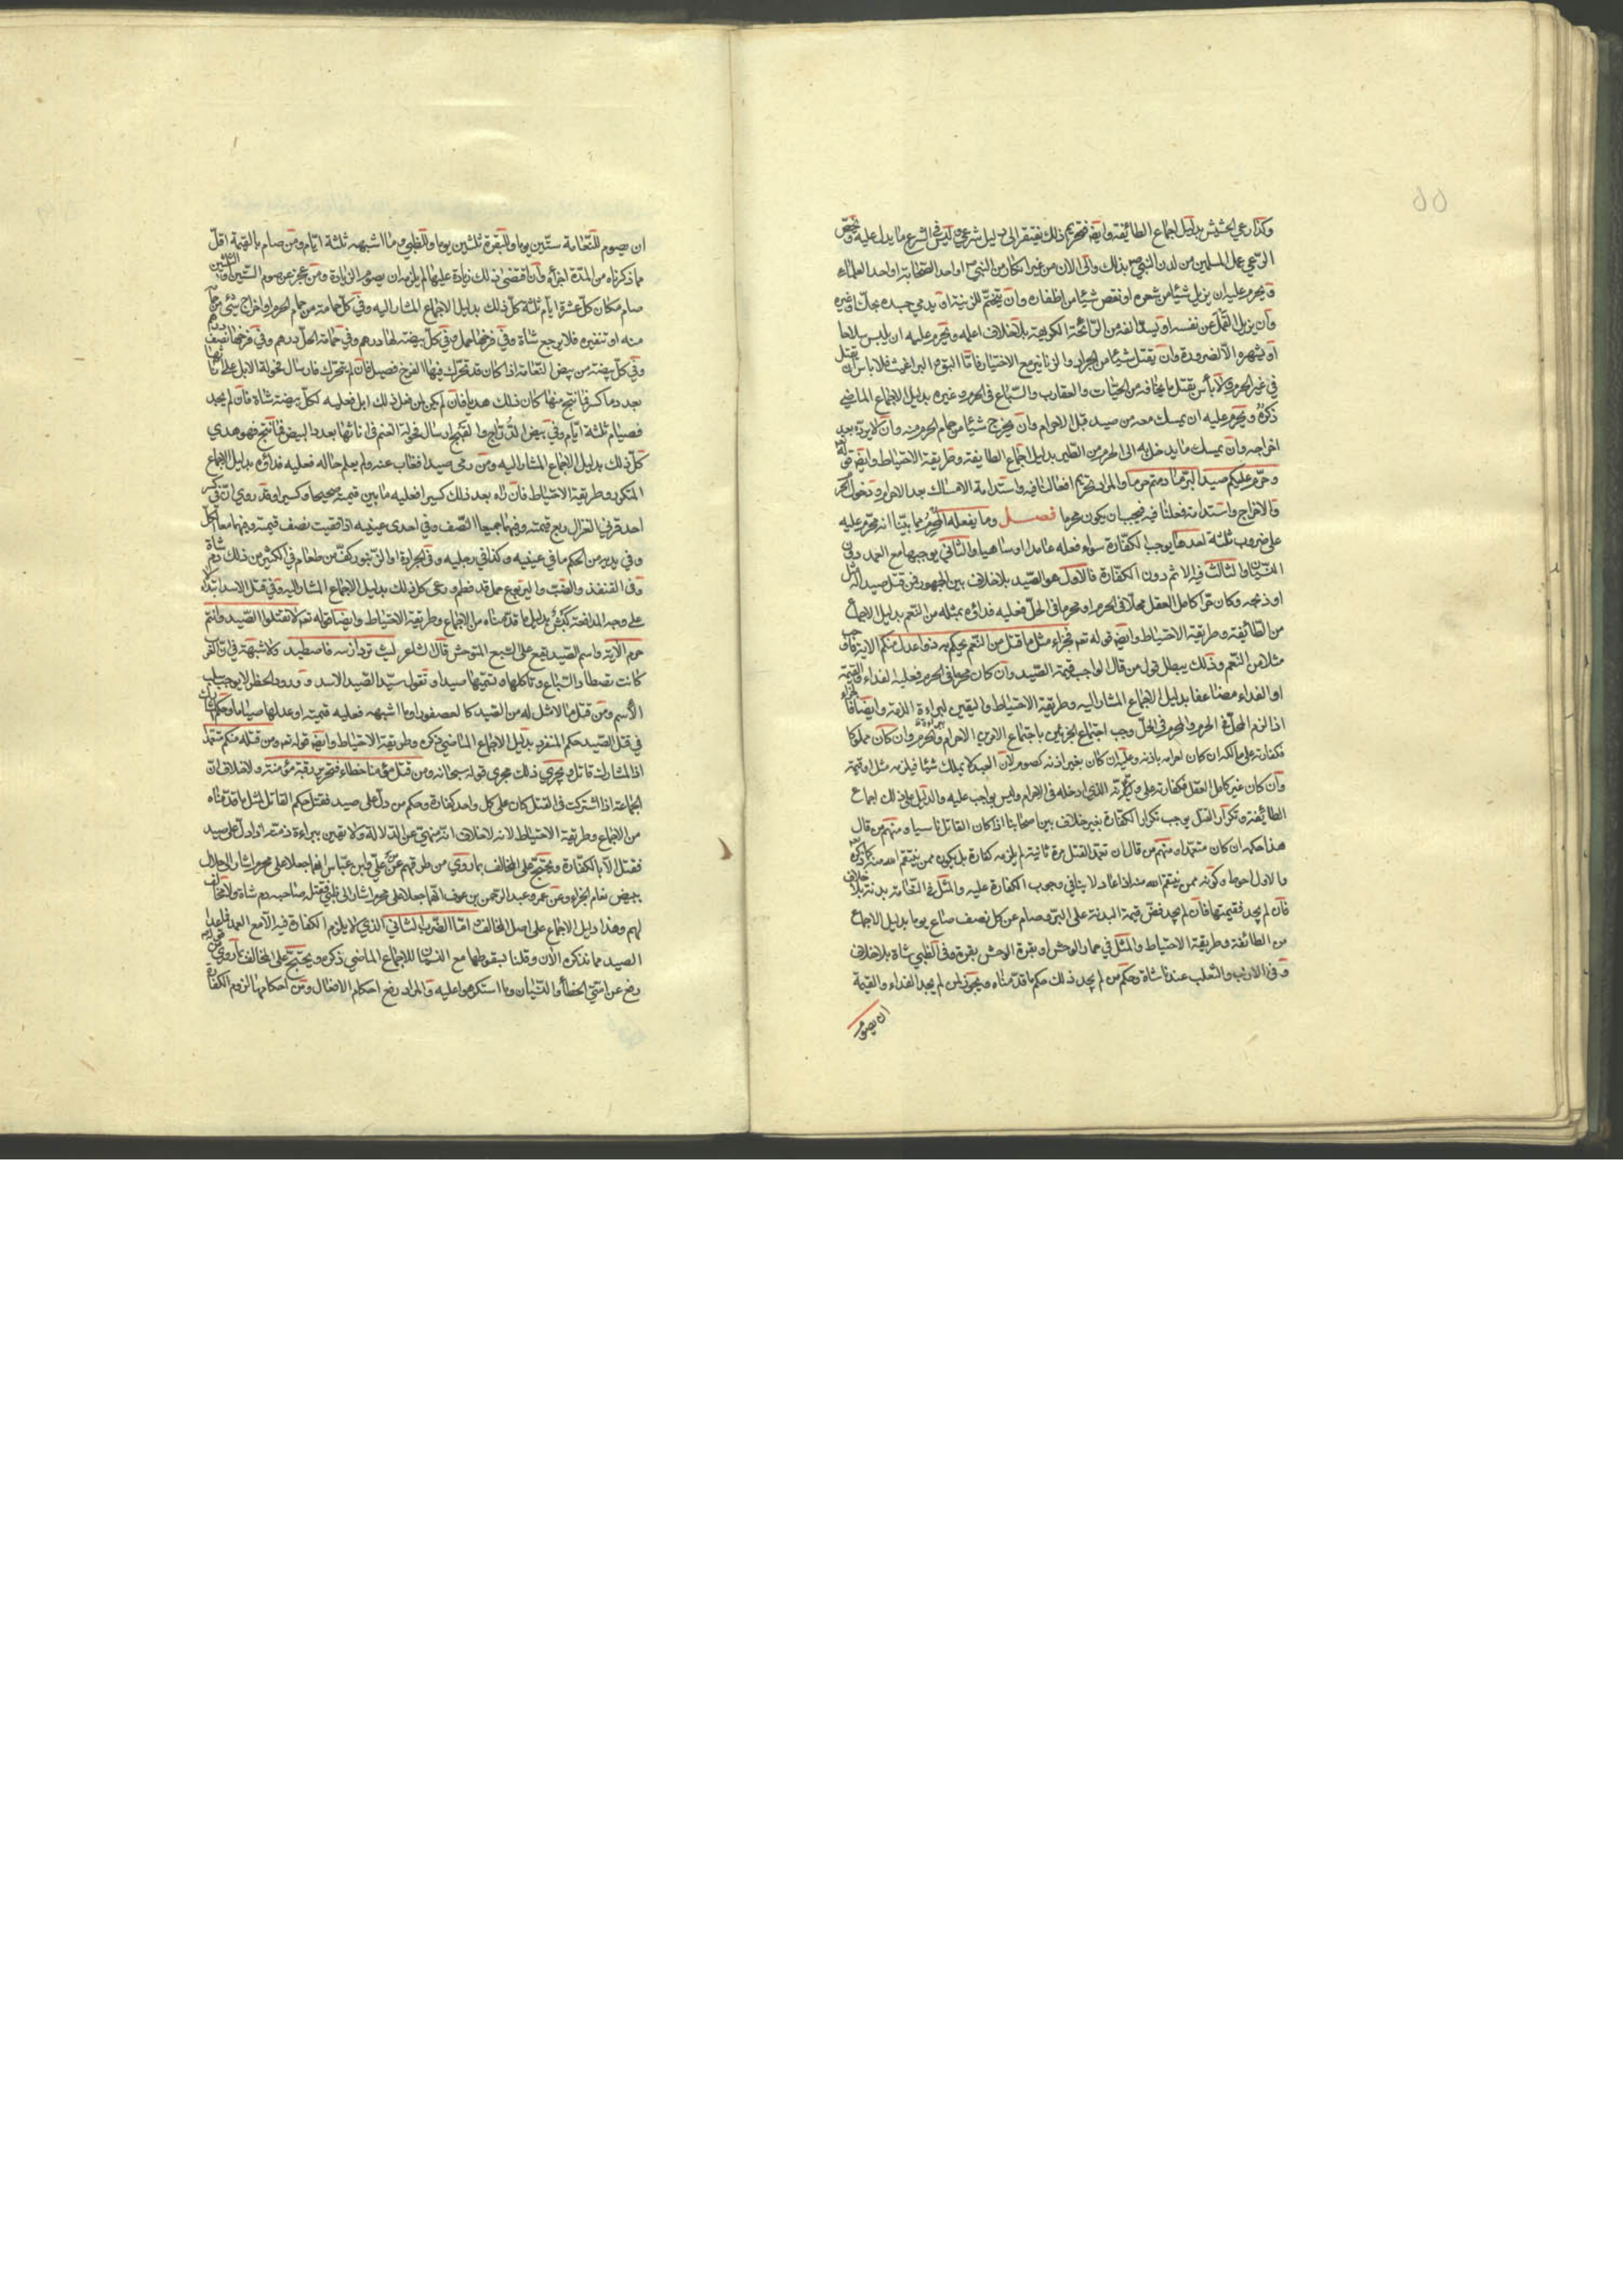 وكذا رعي الحشيش بدليل اجماع الطائفة وايضا فتحريم ذلك يفتقر الى دليل شرعي وليس في الشرع ما يدل عليه ونخص
الرعي عمل المسلمين من لدن النبي ص بذلك والى الان من غير انكار من النبي ص او احد الصحابة او احد العلماء
ويحرم عليه ان يزيل شيئا من شعره او يقص شيئا من اظفاره وان يتختم للزينة او يدمي جسده بحك او غيره
وان يزيل القمل عن نفسه او يسد انفه من الرائحة الكريهة بلا خلاف اعلمه ويحرم عليه ان يلبس سلاحا
او يشهره الا لضرورة وان يقتل شيئا من الجراد والزنابير مع الاختيار فاما البق والبراغيث فلا باس ان يقتل
في غير الحرم ولا بأس بقتل ما يخافه من الحيات والعقارب والسباع في الحرم وغيره بدليل الاجماع الماضي
ذكره ويحرم عليه ان يمسك معه من صيد قبل الاحرام وان يخرج شيئا من حمام الحرم منه وان لا يرده بعد
اخراجه وان يمسك ما يدخل به الى الحرم من الطير بدليل اجماع الطايفة وطريقة الاحتياط وايضا قوله تع
وحرم عليكم صيد البر ما دمتم حرما والمراد تحريم افعالنا فيه واستدامة الامساك بعد الاحرام ودخول الحرم
والاخراج واستدامته فعلنا فيه فيجب ان يكون محرما فصل وما يفعله المحرم مما بيّنا انه محرم عليه
على ضروب ثلثة احدها يوجب الكفارة سواء فعله عامدا او ساهيا والثاني يوجبها مع العمد دون
النسيان والثالث فيه الاثم دون الكفارة فالاول هو الصيد بلا خلاف بين الجمهور فمن قتل صيدا له مثل
او ذبحه وكان حرا كامل العقل محلا في الحرم او محرما في الحل فعليه فداؤه بمثله من النعم بدليل الاجماع
من الطائفة وطريقة الاحتياط وايضا قوله تعم فجزاء مثل ما قتل من النعم يحكم به ذوا عدل منكم الاية فاوجب
مثلا من النعم وذلك يبطل قول من قال الواجب قيمة الصيد وان كان محرما في الحرم فعليه الفداء والقيمة
او الفداء مضاعفا بدليل الاجماع المشار اليه وطريقة الاحتياط واليقين لبراءة الذمة وايضا فالجزاء
اذا لزم المحل في الحرم والمحرم في الحل وجب اجتماع الجزئين باجتماع الامرين الاحرام والحرم وان كان مملوكا
فكفارته على مالكه ان كان احرامه باذنه وعليه ان كان بغير اذنه كصوم لان العبد لا يملك شيئا فيلزمه مثل او قيمة
وان كان غير كامل العقل فكفارته على وليه الذي ادخله في الاحرام وليس بواجب عليه والدليل على ذلك اجماع
الطائفة وتكرار القتل يوجب تكرار الكفارة بغير خلاف بين اصحابنا اذا كان القاتل ناسيا ومنهم من قال
هذا حكمه ان كان متعمدا ومنهم من قال ان تعمد القتل مرة ثانية لم يلزمه كفارة بل يكون ممن ينتقم الله منه كما ذكره
والاول احوط وكونه ممن ينتقم الله منه اذا عاد لا ينافي وجوب الكفارة عليه والمثل في النعامة بدنة بلا خلاف
فان لم يجد فقيمتها فان لم يجد فض قيمة البدنة على البر وصام عن كل نصف صاع يوما بدليل الاجماع
من الطائفة وطريقة الاحتياط والمثل في حمار الوحش او بقرة الوحش بقرة وفي الظبي شاة بلا خلاف
وفي الارنب والثعلب عندنا شاة وحكم من لم يجد ذلك حكم ما قدمناه ويجوز لمن لم يجد الفداء والقيمة
ان يصوم
ان يصوم للنعامة ستين يوما وللبقرة ثلثين يوما وللظبي وما اشبهه ثلثة ايام ومن صام بالقيمة اقل
ما ذكرناه من المدة اجزأه وان اقتضى ذلك زيادة عليها لم يلزمه ان يصوم الزيادة ومن عجز عن صوم الستين او الثلثين
صام مكان كل عشرة ايام ثلثة كل ذلك بدليل الاجماع المشار اليه وفي كل حمامة من حمام الحرم او اخراج شئ من حمام
منه او تنفيره فلا يرجع شاة وفي فرخها حمل وفي كل بيضة لها درهم وفي حمامة الحل درهم وفي فرخها نصف درهم
وفي كل بيضة من بيض النعامة اذا كان قد تحرك فيها الفرخ فصيل فان لم يتحرك فارسال فحولة الابل على اناثها
بعدد ما كسر فما نتج منها كان ذلك هديا فان لم يكن لمن فعل ذلك ابل فعليه لكل بيضة شاة فان لم يجد
فصيام ثلثة ايام وفي بيض الدراج والقبج ارسال فحولة الغنم في اناثها بعدد البيض فما نتج فهو هدي
كل ذلك بدليل الاجماع المشار اليه ومن رمى صيدا فغاب عنه ولم يعلم حاله فعليه فداؤه بدليل الاجماع
المتكرر وطريقة الاحتياط فان رآه بعد ذلك كسيرا فعليه ما بين قيمته صحيحا وكسيرا وقد روي ان في كسر
احد قرني الغزال ربع قيمته وفيهما جميعا النصف وفي احدى عينيه اذا فقيت نصف قيمته وفيهما معا الكل
وفي يديه من الحكم ما في عينيه وكذا في رجليه وفي الجرادة او الزنبور كف من طعام في الكثير من ذلك دم شاة
وفي القنفذ والضب واليربوع حمل قد فطم ورعى كل ذلك بدليل الاجماع المشار اليه وفي قتل الاسد ابتداء
على وجه المدافعة كبش بدليل ما قدمناه من الاجماع وطريقة الاحتياط وايضا قوله تعم لا تقتلوا الصيد وانتم
حرم الاية واسم الصيد يقع على السبع المتوحش قال الشاعر ليث تردا زسه فاصطيد ولا شبهة في ان العرب
كانت تصطاد السباع وتاكلها وتسميها صيدا وتقول سيد الصيد الاسد وورود الحظر لا يوجب سلب
الاسم ومن قتل ما لا مثل له من الصيد كالعصفور او ما اشبهه فعليه قيمته او عدلها صياما وحكم المشارك
في قتل الصيد حكم المنفرد بدليل الاجماع الماضي ذكره وطريقة الاحتياط وايضا قوله تعم ومن قتله منكم متعمدا
اذ المشارك قاتل ويجري ذلك مجرى قوله سبحانه ومن قتل مؤمنا خطاء فتحرير رقبة مؤمنة ولا خلاف ان
الجماعة اذا اشتركت في القتل كان على كل واحد كفارة وحكم من دل على صيد فقتل حكم القاتل لمثل ما قدمناه
من الاجماع وطريقة الاحتياط لانه لا خلاف انه منهي عن الدلالة ولا يقين ببراءة ذمته اذا دل على صيد
فقتل الا بالكفارة ويحتج على المخالف بما روي من طرقهم عن علي وابن عباس انهما جعلا على محرم اشار الى حلال
ببيض نعام الجزاء وعن عمر وعبد الرحمن بن عوف انهما جعلا على محرم اشار الى ظبي فقتله صاحبه دم شاة ولا مخالف
لهم وهذا دليل الاجماع على اصل المخالف واما الضرب الثاني الذي لا يلزم الكفارة فيه الا مع العمد فما عدا
الصيد مما نذكره الان وقلنا بسقوطها مع النسيان للاجماع الماضي ذكره ويحتج على المخالف بما روي من قوله
رفع عن امتي الخطأ والنسيان وما استكرهوا عليه والمراد رفع احكام الافعال ومن احكامها لزوم الكفارة